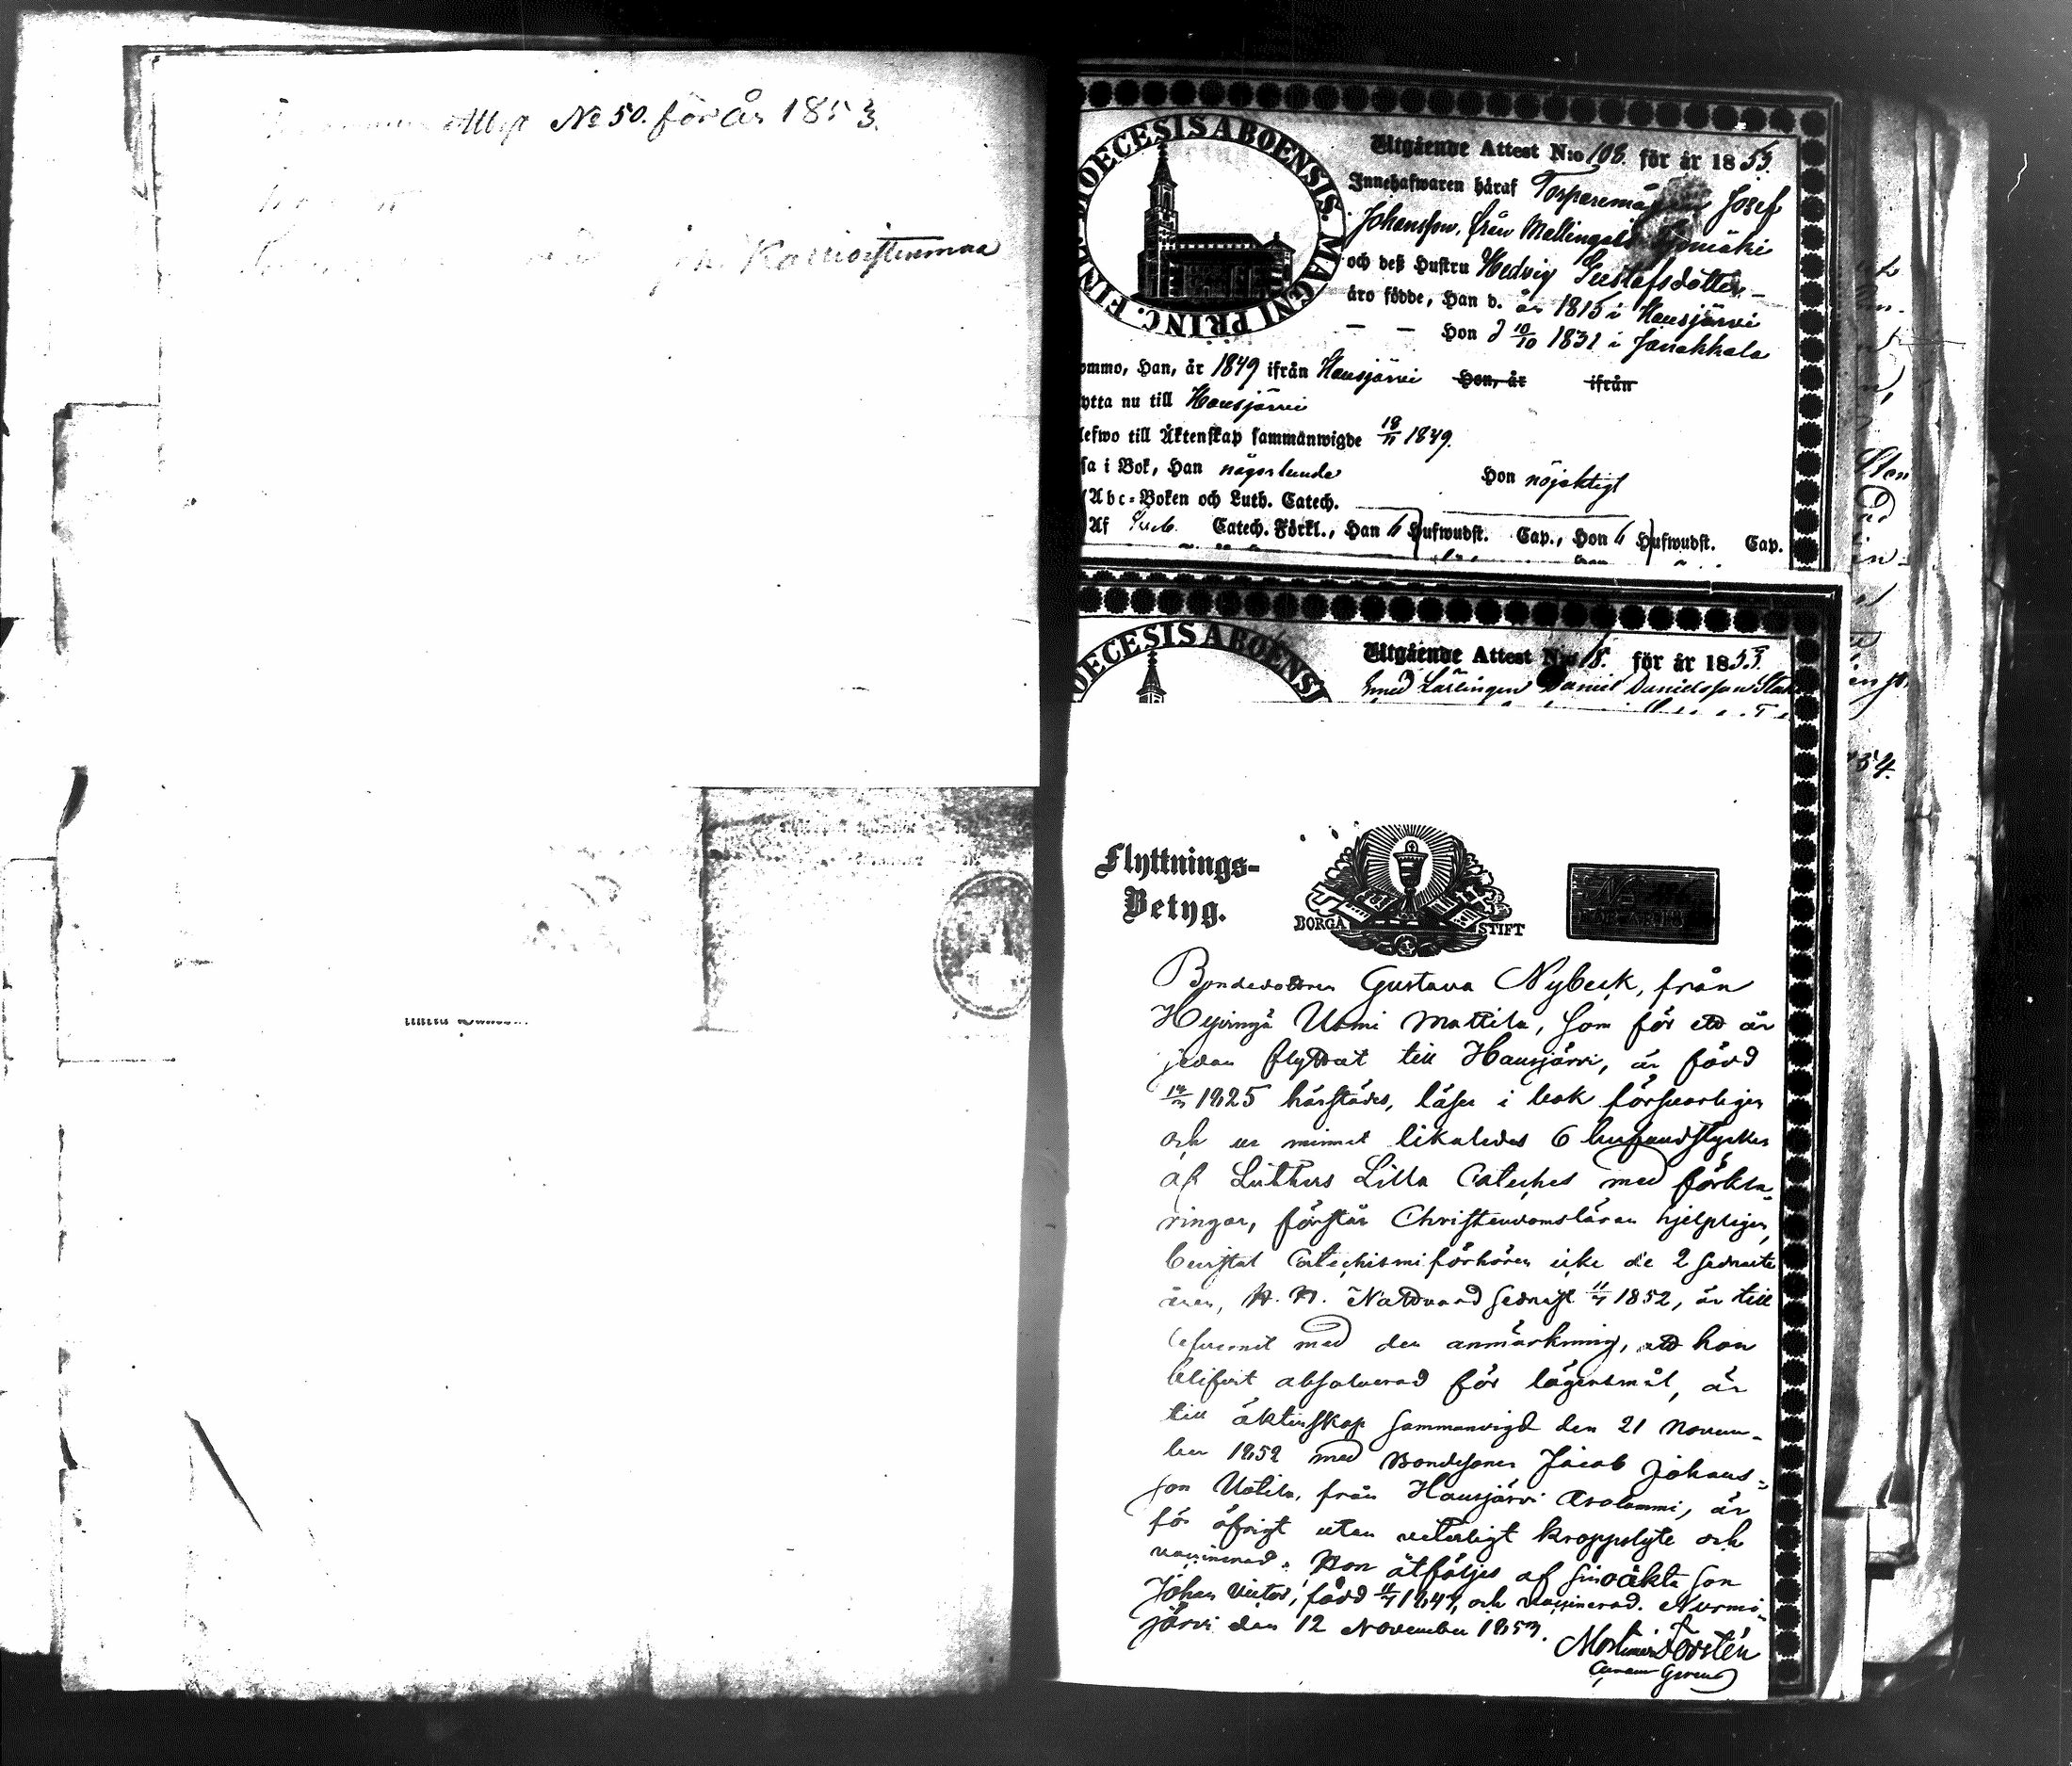 Attest No 50. för år 1853.
Karrioistenmaa
DIOECESIS ABOENSIS. MAGNI PRINC. FINL.
Utgående Attest N:o 108. för år 1853.
Innehafwaren häraf Josef
Johansson, från Mallingais Syömäki
och deß Hustru Hedvig Gustafsdotter
äro födde, Han d. år 1815 i Hausjärvi
— — Hon d 10/10 1831 i Janakkala
ommo, Han, år 1849 ifrån Hausjärvi Hon, år ifrån
ytta nu till Hausjärvi
lefwo till Äktenskap sammanwigde 18/11 1849.
sa i Bok, Han någorlunda Hon nöjaktigt
Abc-Boken och Luth. Catech.
Af Catech. Förkl., Han 6 Hufwudst. Cap., Hon 6 Hufwudst. Cap.
OECESIS ABOENSI
Utgående Attest N:o 18. för år 1853.
med Lärlingen Daniel Danielsson
54.
Flyttnings-
Betyg.
BORGÅ STIFT
No
Bondedottren Gustava Nybeck, från
Hyvingä Usmi Mattila, som för ett år
sedan flyttat till Hausjärvi, är född
1825 härstädes, läser i bok försvarligen
och ur minnet likaledes 6 hufvudstycken
af Luthers Lilla Cateches med förkla-
ringar, förstår Christendomsläran hjelpligen,
bevistat Catechismiförhören icke de 2 sednaste
åren, H. H. Nattvard sednast 1852, är till
med den anmärkning, att hon
blifvit absolverad för lägersmål, är
till äktenskap sammanvigd den 21 Novem-
ber 1852 med Bondesonen Jacob Johans-
son Uotila, från Hausjärvi Erolammi, är
för öfrigt utan veterligt kroppslyte och
vaccinerad. Hon åtföljes af sin oäkta son
Johan Victor, född och vaccinerad. Nurmi-
järvi den 12 November 1853.
Mortimer Forstén